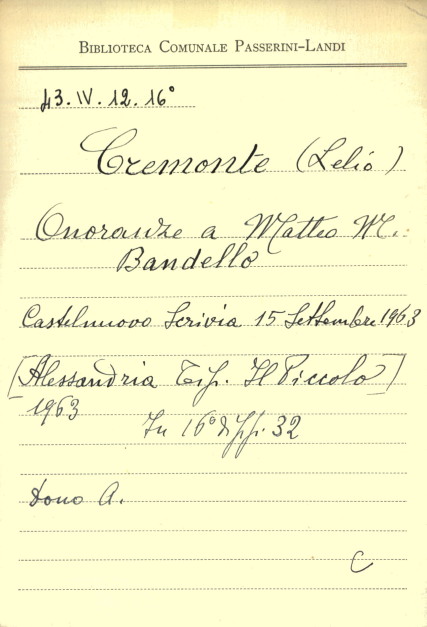 BIBLIOTECA COMUNALE PASSERINI-LANDI
43.IV.12.16°
Cremonte (Lelio)
Onoranze a Matteo M.
Bandello
Castelnuovo Scrivia 15 Settembre 1963
[Alessandria Tip. Il Piccolo]
1963
In 16° di pp. 32
Dono A.
C